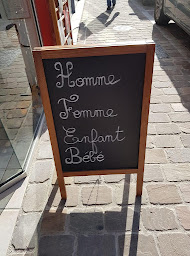 Homme
Femme
Enfant
Bébé